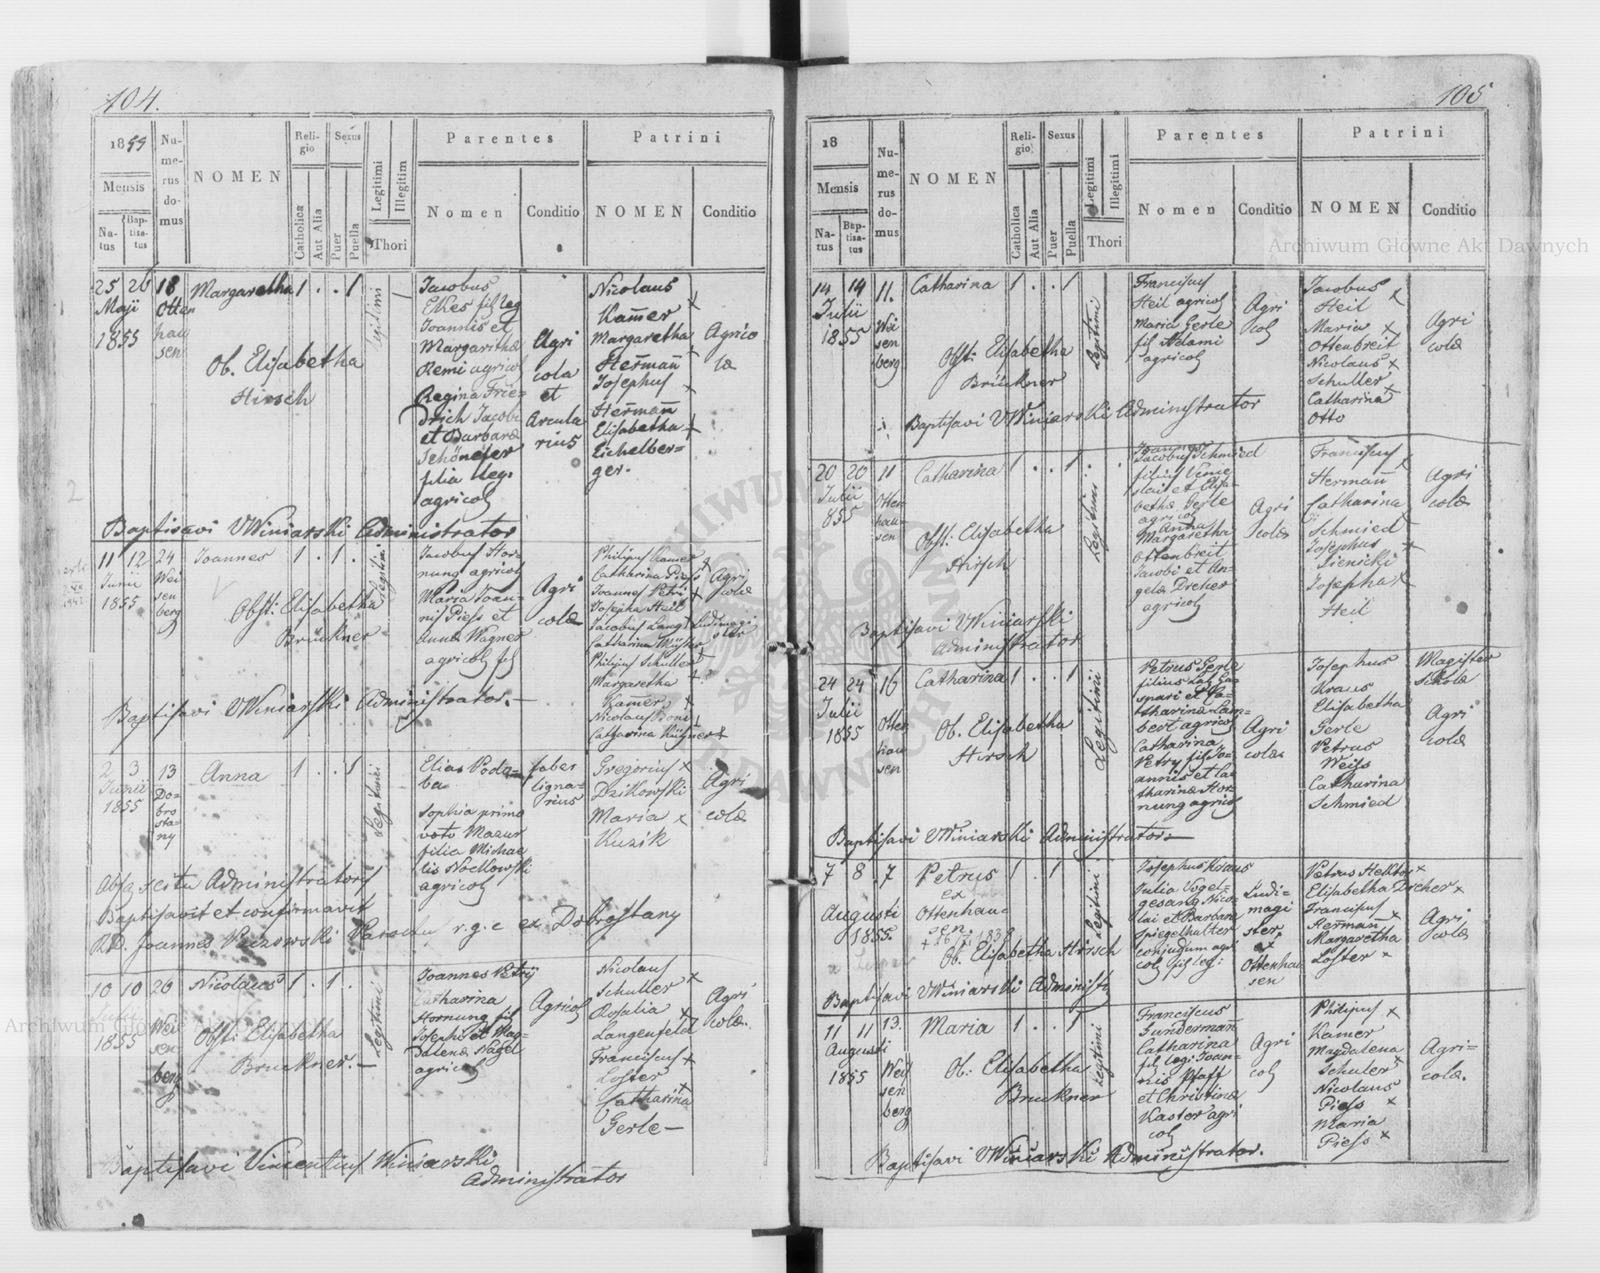 104.
1855
Mensis
Na-
tus
Bap-
tisa-
tus
Nu-
me-
rus
do-
mus
NOMEN
Reli-
gio
Catholica
Aut Alia
Sexus
Puer
Puella
Legitimi
Illegitim
Thori
Parentes
Nomen
Conditio
Patrini
NOMEN
Conditio
25 26
Maji
1855
18
Otten
hau
sen
Margaretha
1 . . 1
Ob. Elisabetha
Hirsch
Legitimi
Jacobus
Elkes fil leg
Joannis et
Margarithæ
Remi agricol
Regina Frie-
drich Jacobi
et Barbaræ
Schöneser
filia leg.
agricol
Agri
cola
et
Arcula
rius
Nicolaus
Kam̅er x
Margaretha
Herman̅
Josephus x
Herman̅
Elisabetha
Eichelber=
ger.
Agrico
læ
Baptisavi VWiniarski Administrator
11 12
Junii
1855
24
Wei
sen
berg
Joannes
1 . 1 .
Obst: Elisabetha
Brückner=
Legitimi
Jacobus Hor-
nung agricol
Maria Joan-
nis Piess et
Annæ Wagner
agricol fil
Agri
colæ
Philipus Kamer
Catharina Piess
Joannes Petri
Josepha Heil
Jacobus Lang
Catharina
Philipus Schuller
Margaretha
Kam̅er x
Nicolaus
Catharina
Agri
colæ
Ludimagi
ster
Baptisavi VWiniarski Administrator.–
2 3
Junii
1855
13
Do-
bro
sta-
ny
Anna
1 . . 1
Legitimi
Elias Poda-
ba
Sophia primo
voto Mazur
filia Michae
lis Noclowski
agricol
faber
ligna-
rius
Gregorius x
Dzikowski
Maria x
Kuzik
Agri
colæ
Absq scitu Administratoris
Baptisavit et confirmavit
R.D. Joannes r.g.c ex Dobrostany
10 10
1855
20
Wei
sen
berg
Nicolaus
1 . 1 .
Obst: Elisabetha
Bruckner.–
Legitimi
Joannes Petrÿ
Catharina
Hornung fil
Josephi et Mag-
dalenæ Nagel
agricol
Agricol
Nicolaus
Schuller x
Rosalia
Langenfeld
Franciscus +
Loster
Catharina
Gerle–
Agri
colæ.
Baptisavi Vincentius Winiarski
Administrator
105
18
Mensis
Na-
tus
Bap-
tisa-
tus
Nu-
me-
rus
do-
mus
NOMEN
Reli-
gio
Catholica
Aut Alia
Sexus
Puer
Puella
Legitimi
Illegitimi
Thori
Parentes
Nomen
Conditio
Patrini
NOMEN
Conditio
14 14
Julii
1855
11.
Wei
sen
berg
Catharina
1 . . 1
Obst: Elisabetha
Brückner
Legitimi
Franciscus
Heil agricol
Maria Gerle
fil Adami
agricol
Agri
col
Jacobus
Heil x
Maria x
Ottenbreit
Nicolaus x
Schuller
Catharina
Otto
Agri
colæ
Baptisavi VWiniarski Administrator
20 20
Julii
855
11
Otten
hau-
sen
Catharina
1 . . 1
Obst: Elisabetha
Hirsch
Legitimi
Jacobus Schmied
filius Vence
slai et Elisa-
bethæ Gerle
agricol
Anna
Margaretha
Ottenbreit
Jacobi et An-
gelæ Dreher
agricol
Agri
colæ
Franciscus
Herman̅ x
Catharina
Schmied
Josephus
Sienicki
Josepha x
Heil
Agri
colæ
Baptisavi VWiniarski
administrator
24 24
Julii
1855
16
Otten
hau
sen
Catharina
1 . . 1
Ob. Elisabetha
Hirsch
Legitimi
Petrus Gerle
filius
spari et Ca-
tharinæ Lam-
bert agricol
Catharina
Petry fil Jo-
annis et Ca
tharinæ Hor-
nung agricol
Agri
colæ
Josephus
Kraus
Elisabetha
Gerle
Petrus
Weiss
Catharina
Schmied
Magister
scholæ
Agri
colæ
Baptisavi VWiniarski Administrator–
7 8
Augusti
1855.
7
Petrus
ex
Ottenhau-
sen.
1 . 1
Ob. Elisabetha Hirsch
Legitimi
Josephus Kraus
Julia Vogel-
gesang Nico-
lai et Barbara
Spiegelhalter
agri
col fil leg:
Ludi-
magi
ster
ex
Ottenhau
sen
Petrus Hektor x
Elisabetha Dreher x
Franciscus
Herman̅ x
Margaretha
Loster x
Agri
colæ
Baptisavi VWiniarski Administ
11 11
Augusti
1855
13.
Wei
sen
berg
Maria
1 . . 1
Ob: Elisabetha
Bruckner
Legitimi
Franciscus
Gunderman̅
Catharina
fil leg: Joan-
nis Pfaff
et Christinæ
Kastor agri
col
Agri
col
Philipus x
Kamer
Magdalena
Schuler x
Nicolaus
Piess x
Maria
Piess x
Agri=
colæ.
Baptisavi VWiniarski Administrator.
Archiwum Główne Akt Dawnych